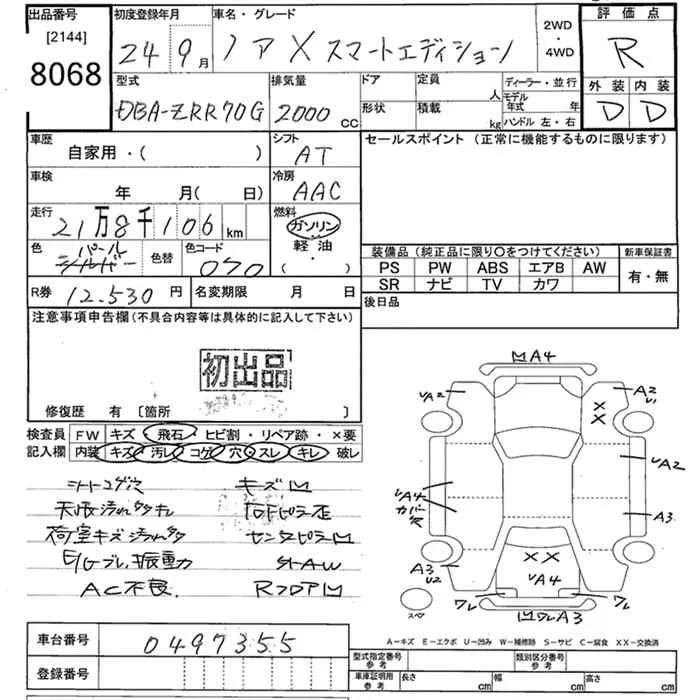 出品番号 初度登録年月 車名・グレード 2WD・4WD 評価点
[2144]
8068
24 9月 ノア X スマートエディション R
型式 排気量 ドア 定員 人 ディーラー・並行 外装 内装
DBA-ZRR70G 2000cc 形状 積載 kg モデル年式 年 ハンドル 左・右 D D
車歴 自家用・( ) シフト AT セールスポイント (正常に機能するものに限ります)
車検 年 月( 日) 冷房 AAC
走行 21万8千106km 燃料 ガソリン
軽油
( ・ )
色 パール シルバー 色替 色コード 070 装備品 (純正品に限り〇をつけてください) 新車保証書
PS PW ABS エアB AW 有・無
SR ナビ TV カワ
R券 12.530円 名変期限 月 日 後日品
注意事項申告欄 (不具合内容等は具体的に記入して下さい)
初出品
修復歴 有 [箇所 ]
検査員 FW キズ 飛石・ヒビ割・リペア跡・×要
記入欄 内装 キズ 汚レ コゲ 穴・スレ キレ 破レ
シートコゲ穴 キズM
荷室キズ汚レ多
E/Gブレ、振動大
センタピラーM
AC不良. RフロアM
MA4
A2 A2
U1
A2
A4 カバー穴
A3
A3
U2
××
××
A4
ワレ ワレ
スペア
Mワレ A3
A-キズ E-エクボ U-凹み W-補修跡 S-サビ C-腐食 XX-交換済
車台番号 0497355
型式指定番号 参考 類別区分番号 参考
登録番号
車庫証明用 参考 長さ cm 幅 cm 高さ cm